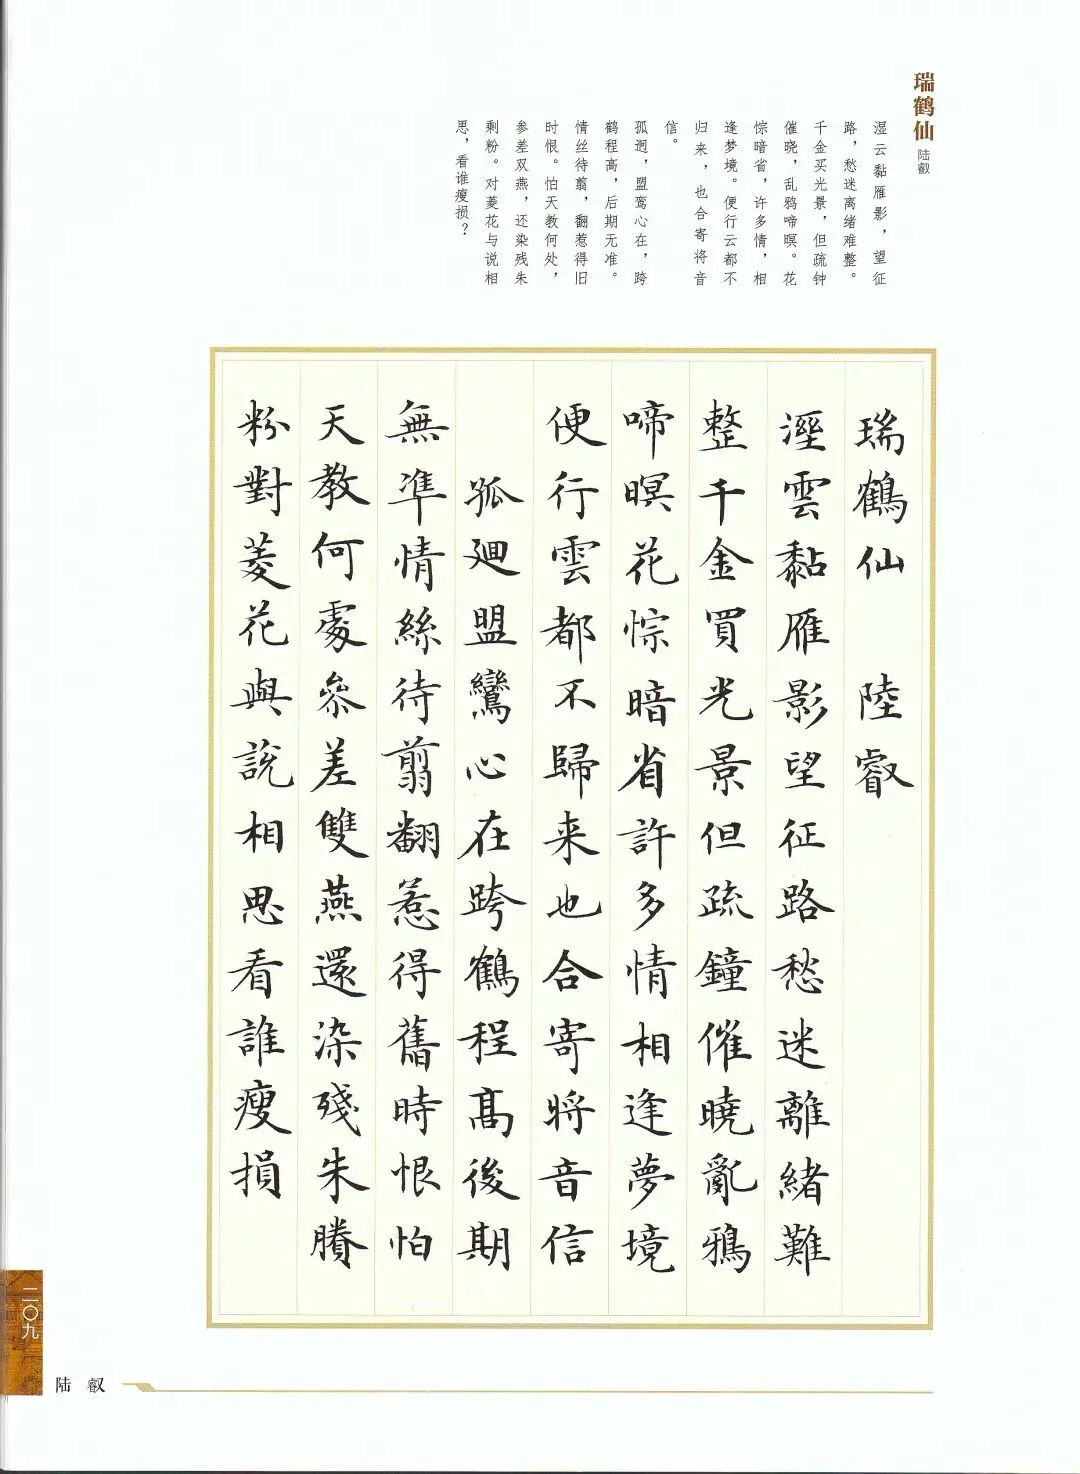 瑞鹤仙 陆叡
湿云黏雁影，望征
路，愁迷离绪难整。
千金买光景，但疏钟
催晓，乱鸦啼暝。花
悰暗省，许多情，相
逢梦境。便行云都不
归来，也合寄将音
信。
孤迥，盟鸾心在，跨
鹤程高，后期无准。
情丝待翦，翻惹得旧
时恨。怕天教何处，
参差双燕，还染残朱
剩粉。对菱花与说相
思，看谁瘦损？
瑞鶴仙 陸叡
溼雲黏雁影望征路愁迷離緒難
整千金買光景但疏鐘催曉亂鴉
啼暝花悰暗省許多情相逢夢境
便行雲都不歸来也合寄將音信
孤迴盟鸞心在跨鶴程髙後期
無準情絲待翦翻惹得舊時恨怕
天教何處參差雙燕還染殘朱賸
粉對菱花與說相思看誰瘦損
二〇九
陆叡